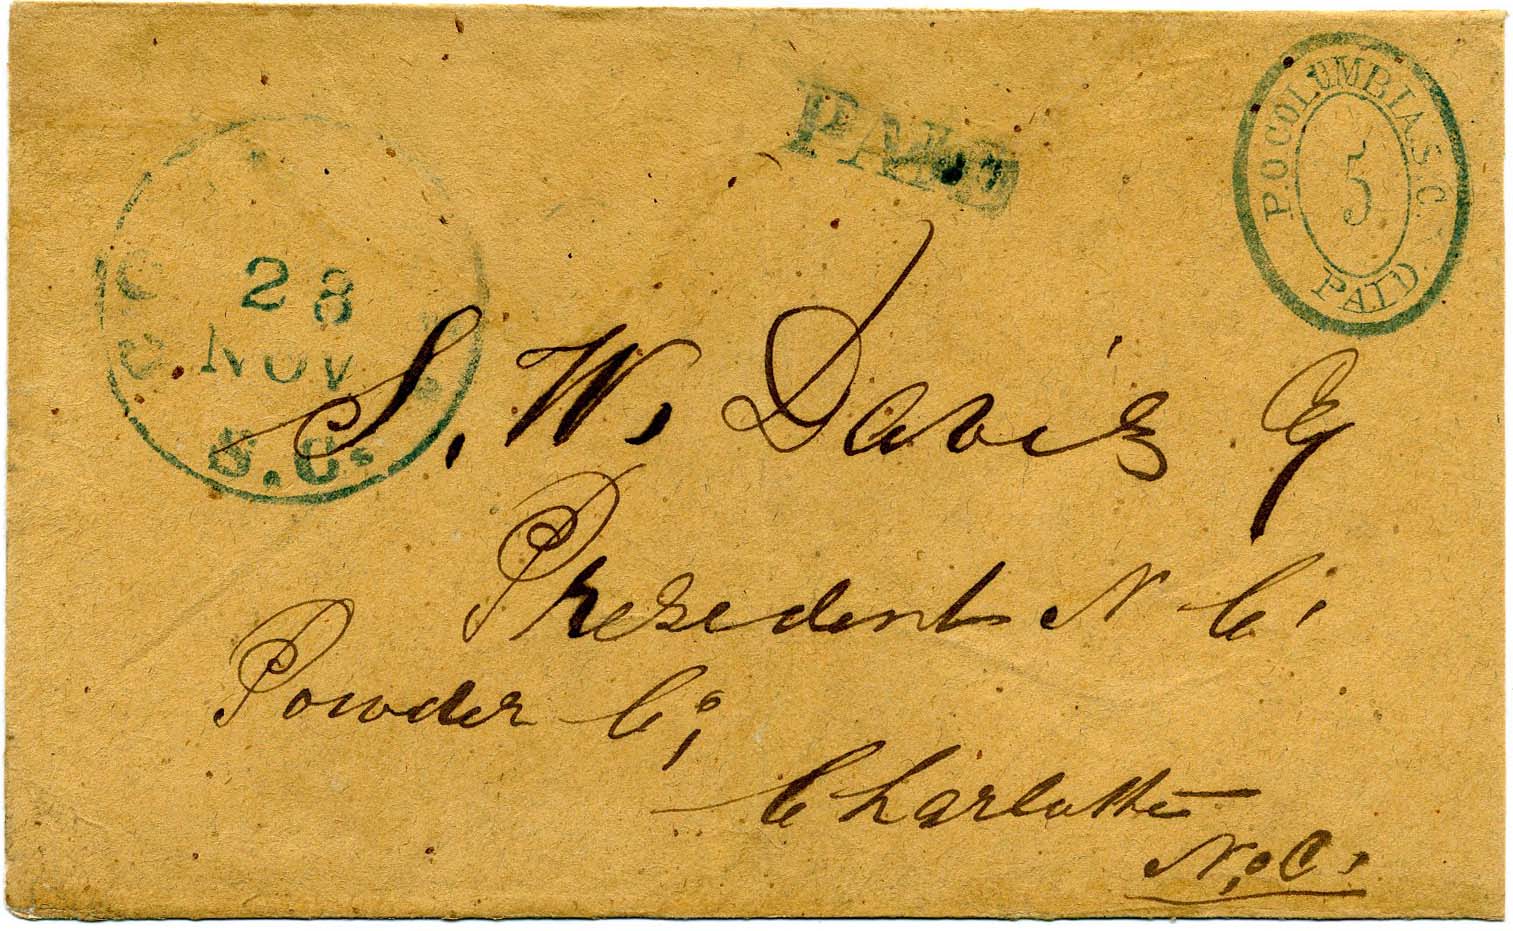 PAID
P.O COLUMBIA S.C.
5
PAID
28
NOV
S.C.
S. W. Davis
President N C.
Powder Co;
Charlotte
N.C.